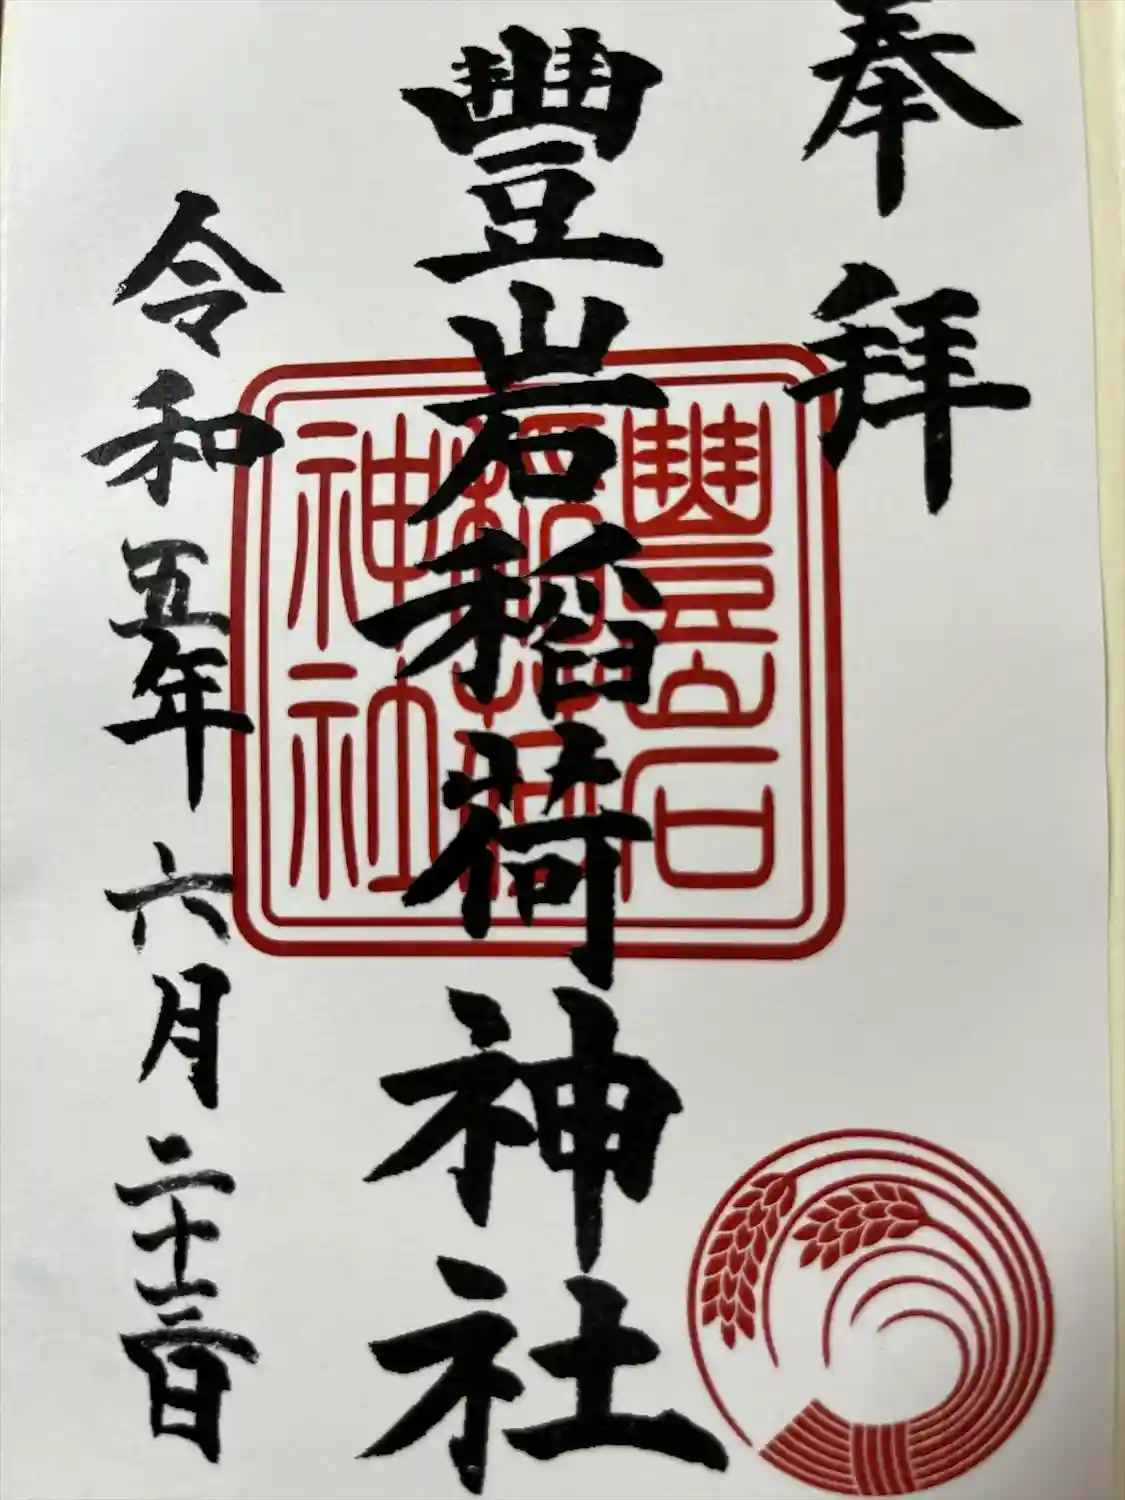 奉拜
豐岩稲荷神社
豐岩
稲荷
神社
令和五年六月二十三日